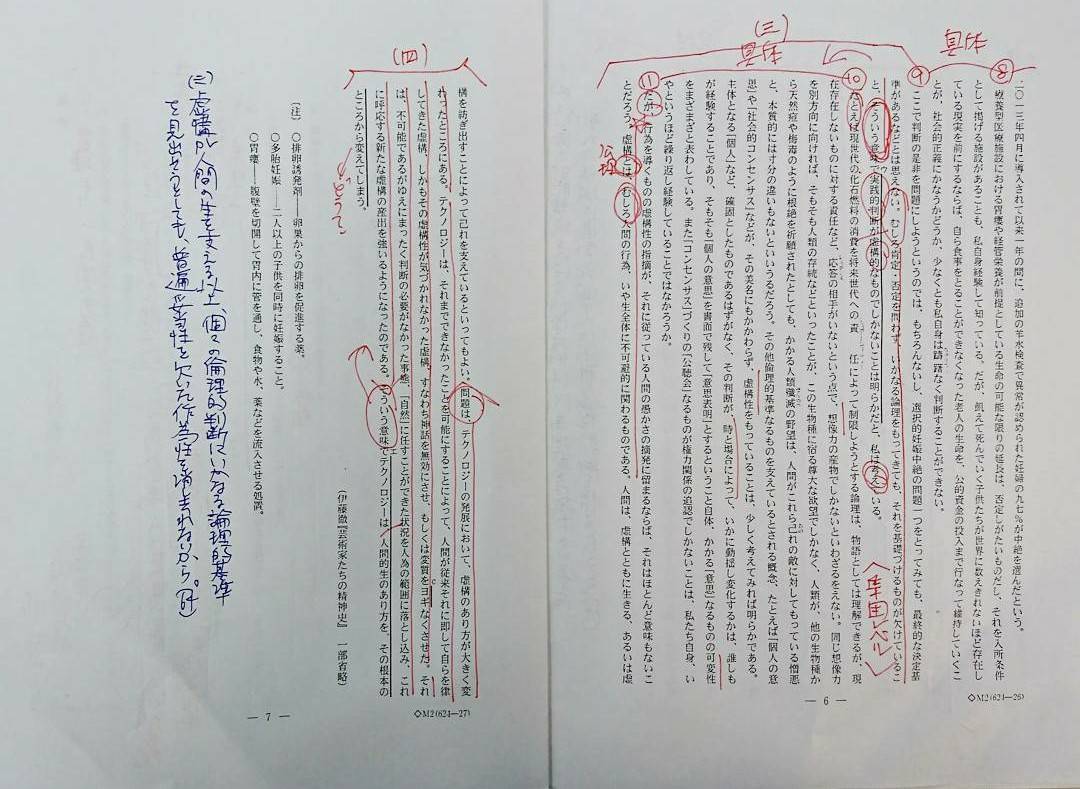 (三)
具体
具体
⑧
⑨
⑩
⑪
二〇一三年四月に導入されて以来一年の間に、追加の羊水検査で異常が認められた妊婦の九七％が中絶を選んだという。
療養型医療施設における胃瘻や経管栄養が前提としている生命の可能な限りの延長は、否定しがたいものだし、それを入所条件
として掲げる施設があることも、私自身経験して知っている。だが、飢えて死んでいく子供たちが世界に数えきれないほど存在し
ている現実を前にするならば、自ら食事をとることができなくなった老人の生命を、公的資金の投入まで行なって維持していくこ
とが、社会的正義にかなうかどうか、少なくとも私自身は躊躇なく判断することができない。
ここで判断の是非を問題にしようというのでは、もちろんないし、選択的妊娠中絶の問題一つをとってみても、最終的な決定基
準があるなどとは思えない。むしろ肯定・否定を問わず、いかなる論理をもってきても、それを基礎づけるものが欠けているこ
と、そういう意味で実践的判断が虚構的なものでしかないことは明らかだと、私は考えている。
たとえば現世代の化石燃料の消費を将来世代への責任によって制限しようとする論理は、物語としては理解できるが、現
在存在しないものに対する責任など、応答の相手がいないという点で、想像力の産物でしかないといわざるをえない。同じ想像力
を別方向に向ければ、そもそも人類の存続などといったことが、この生物種に宿る尊大な欲望でしかなく、人類が、他の生物種か
ら天然痘や梅毒のように根絶を祈願されたとしても、かかる人類殲滅の野望は、人間がこれら己れの敵に対してもっている憎悪
と、本質的には寸分の違いもないといいうるだろう。その他倫理的基準なるものを支えているとされる概念、たとえば「個人の意
思」や「社会的コンセンサス」などが、その美名にもかかわらず、虚構性をもっていることは、少しく考えてみれば明らかである。
主体となる「個人」など、確固としたものであるはずがなく、その判断が、時と場合によって、いかに動揺し変化するかは、誰しも
が経験することであり、そもそも「個人の意思」を書面で残して「意思表明」とするということ自体、かかる「意思」なるものの可変性
をまざまざと表わしている。また「コンセンサス」づくりの「公聴会」なるものが権力関係の追認でしかないことは、私たち自身、い
やというほど繰り返し経験していることではなかろうか。
だが、行為を導くものの虚構性の指摘が、それに従っている人間の愚かさの摘発に留まるならば、それはほとんど意味もないこ
とだろう。虚構とは、むしろ人間の行為、いや生全体に不可避的に関わるものである。人間は、虚構とともに生きる、あるいは虚
〈集団レベル〉
― 6 ―
◇M2(624―26)
(四)
構を紡ぎ出すことによって己れを支えているといってもよい。問題は、テクノロジーの発展において、虚構のあり方が大きく変
わったところにある。テクノロジーは、それまでできなかったことを可能にすることによって、人間が従来それに即して自らを律
してきた虚構、しかもその虚構性が気づかれなかった虚構、すなわち神話を無効にさせ、もしくは変質をヨギなくさせた。それ
は、不可能であるがゆえにまったく判断の必要がなかった事態、「自然」に任すことができた状況を人為の範囲に落とし込み、これ
に呼応する新たな虚構の産出を強いるようになったのである。そういう意味でテクノロジーは、人間的生のあり方を、その根本の
ところから変えてしまう。
(伊藤徹『芸術家たちの精神史』一部省略)
〔注〕 ○排卵誘発剤――卵巣からの排卵を促進する薬。
○多胎妊娠――二人以上の子供を同時に妊娠すること。
○胃瘻――腹壁を切開して胃内に管を通し、食物や水、薬などを流入させる処置。
◇M2(624―27)
― 7 ―
(三) 虚構が人間の生を支える以上、個々の倫理的判断にいかなる論理的基準
を見出そうとしても、普遍妥当性を欠いた作為性を